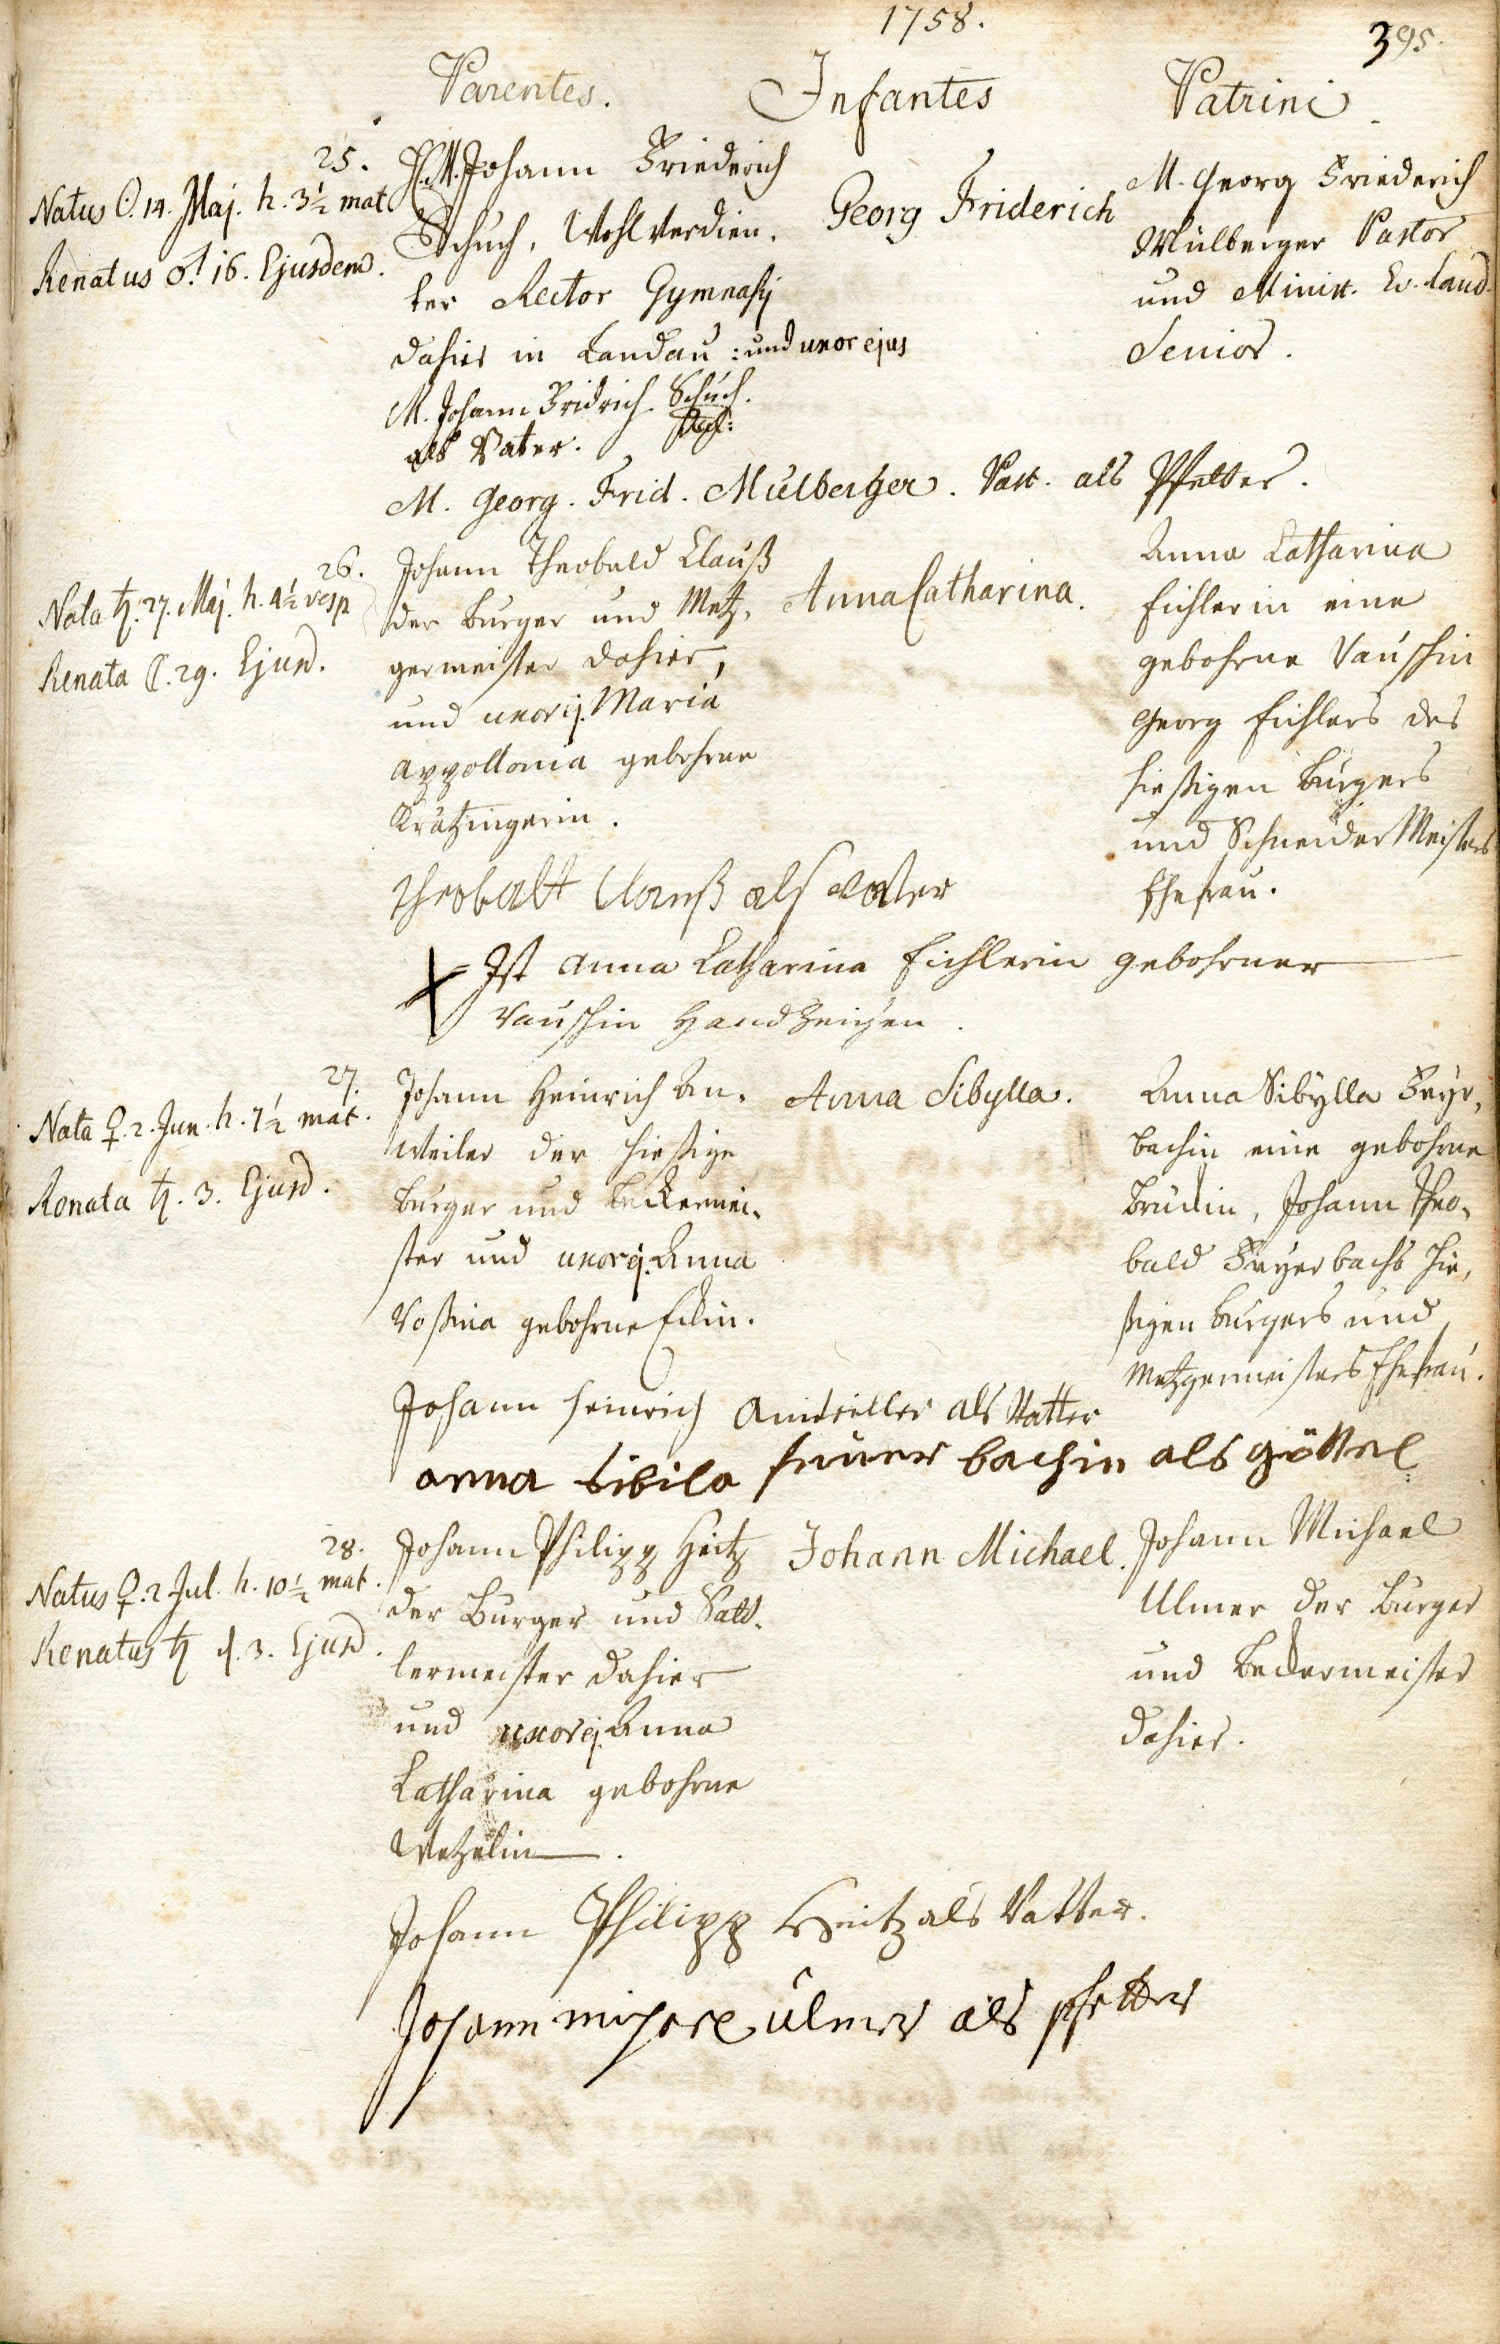 1758.
395.
Parentes.
Infantes
Patrini
25.
Natus ☉. 14. Maj. h. 3½ mat.
Renatus ♂. 16. Ejusdem.
H. M. Johann Friederich
Schuch, Wohlverdien,
ter Rector Gymnasij
dahier in Landau : und uxor ejus
M. Johann Fridrich Schuch.
als Vater.
Georg Friderich
M. Georg Friederich
Mülberger Pastor
und Minist. Ev. Land.
Senior.
M. Georg. Frid. Mülberger. Past. als Pfetter.
26.
Nata ♄. 27. Maj. h. 4½ vesp
Renata ☾. 29. Ejusd.
Johann Theobald Clauß
der burger und Metz,
germeister dahier,
und uxor ej. Maria
Appollonia gebohrne
Krätzingerin.
Anna Catharina.
Anna Catharina
Eichlerin eine
gebohrne Vauschin
Georg Eichlers des
hießigen burgers
und Schneider Meisters
Ehefrau.
Theobalt Clauß als Vater
Ist Anna Catharina Eichlerin gebohrner
Vauschin Handzeichen.
27.
Nata ♀. 2. Jun. h. 7½ mat.
Renata ♄. 3. Ejusd.
Johann Heinrich An,
weiler der hießige
burger und beckermei,
ster und uxor ej. Anna
Rosina gebohrne Eckin.
Anna Sibylla.
Anna Sibylla Feyr,
bachin eine gebohrne
Bruckin, Johann Theo,
bald Feyerbachs hie,
ßigen burgers und
Metzgermeisters Ehefrau.
Johann Heinrich Anweiller als Vatter
anna sibila feuer bachin als göttel
28.
Natus ♀. 2 Jul. h. 10½ mat.
Renatus ♄ d. 3. Ejusd.
Johann Philipp Heitz
der Burger und Satt,
lermeister dahier
und uxor ej. Anna
Catharina gebohrne
Wetzelin.
Johann Michael.
Johann Michael
Ulmer der burger
und beckermeister
dahier.
Johann Philipp Heitz als Vatter.
Johann michael ulmer als pfetter